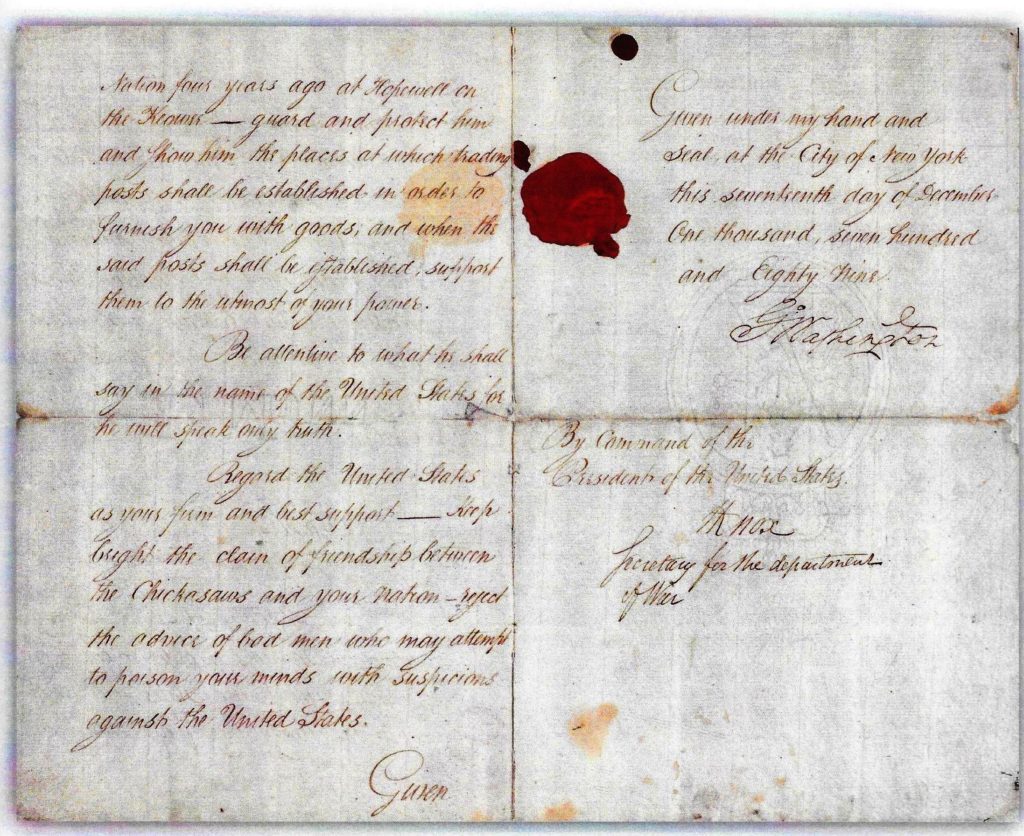 Nation four years ago at Hopewell on
the Keowee — guard and protect him
and show him the places at which trading
posts shall be established in order to
furnish you with goods, and when the
said posts shall be established, support
them to the utmost of your power.
Be attentive to what he shall
say in the name of the United States for
he will speak only truth.
Regard the United States
as your firm and best support — Keep
bright the chain of friendship between
the Chickasaws and your Nation — reject
the advice of bad men who may attempt
to poison your minds with suspicions
against the United States.
Given
Given under my hand and
Seal, at the City of New York
this seventeenth day of December
One thousand, seven hundred
and Eighty Nine
G Washington
By Command of the
President of the United States.
H Knox
Secretary for the department
of War